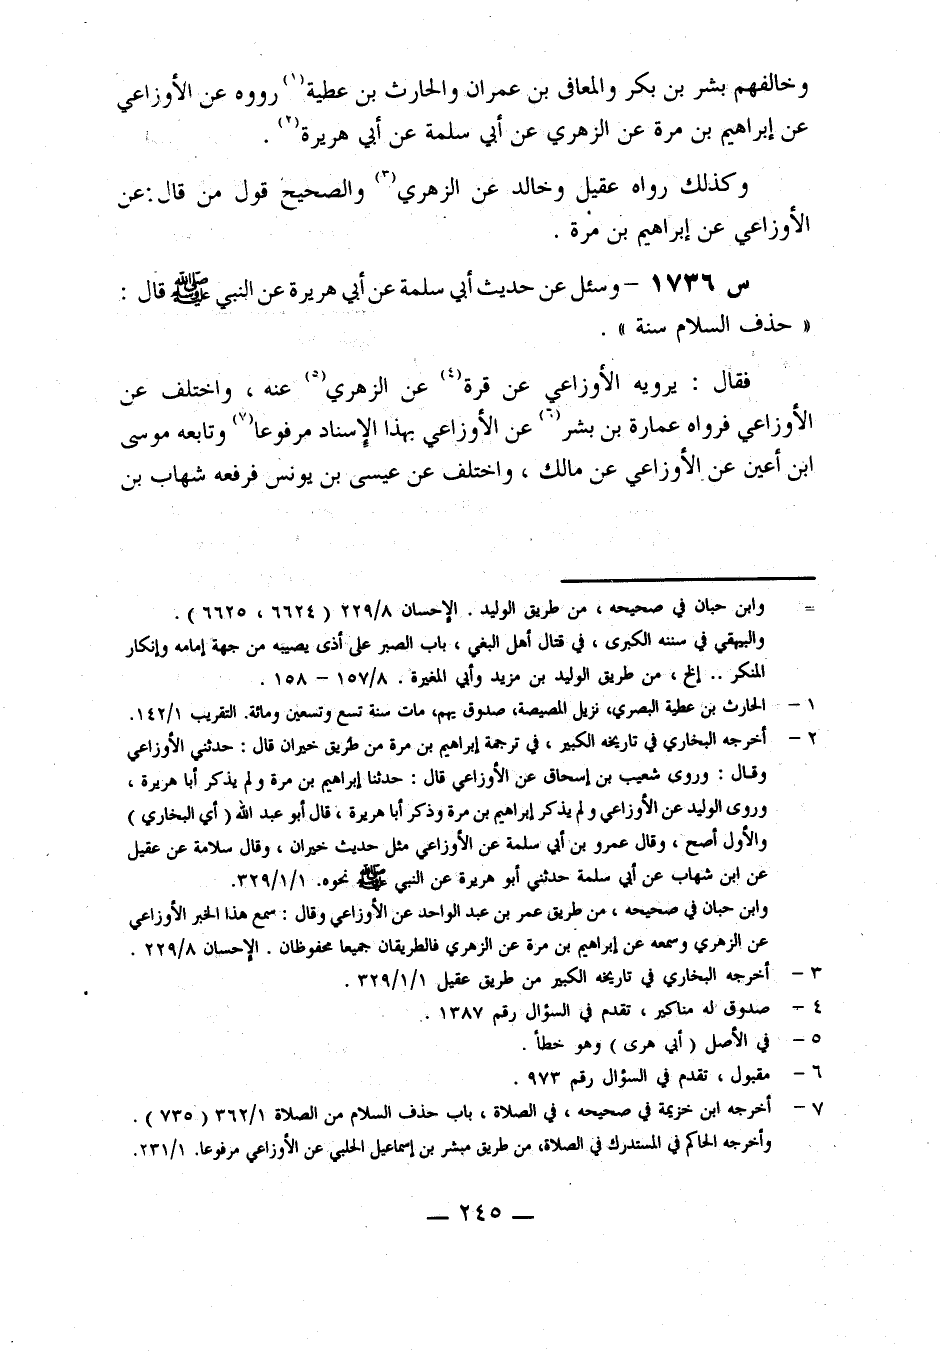 وخالفهم بشر بن بكر والمعافى بن عمران والحارث بن عطية(١) رووه عن الأوزاعي
عن إبراهيم بن مرة عن الزهري عن أبي سلمة عن أبي هريرة(٢) .
وكذلك رواه عقيل وخالد عن الزهري(٣) والصحيح قول من قال : عن
الأوزاعي عن إبراهيم بن مرة .
س ١٧٣٦ – وسئل عن حديث أبي سلمة عن أبي هريرة عن النبي ﷺ قال :
« حذف السلام سنة » .
فقال : يرويه الأوزاعي عن قرة(٤) عن الزهري(٥) عنه ، واختلف عن
الأوزاعي فرواه عمارة بن بشر(٦) عن الأوزاعي بهذا الإسناد مرفوعا(٧) وتابعه موسى
ابن أعين عن الأوزاعي عن مالك ، واختلف عن عيسى بن يونس فرفعه شهاب بن
= وابن حبان في صحيحه ، من طريق الوليد . الإحسان ٢٢٩/٨ ( ٦٦٢٤ ، ٦٦٢٥ ) .
والبيهقي في سننه الكبرى ، في قتال أهل البغي ، باب الصبر على أذى يصيبه من جهة إمامه وإنكار
المنكر .. إلخ ، من طريق الوليد بن مزيد وأبي المغيرة . ١٥٧/٨ – ١٥٨ .
١ – الحارث بن عطية البصري، نزيل المصيصة، صدوق يهم، مات سنة تسع وتسعين ومائة. التقريب ١٤٢/١.
٢ – أخرجه البخاري في تاريخه الكبير ، في ترجمة إبراهيم بن مرة من طريق خيران قال : حدثني الأوزاعي
وقال : وروى شعيب بن إسحاق عن الأوزاعي قال : حدثنا إبراهيم بن مرة ولم يذكر أبا هريرة ،
وروى الوليد عن الأوزاعي ولم يذكر إبراهيم بن مرة وذكر أبا هريرة ، قال أبو عبد الله ( أي البخاري )
والأول أصح ، وقال عمرو بن أبي سلمة عن الأوزاعي مثل حديث خيران ، وقال سلامة عن عقيل
عن ابن شهاب عن أبي سلمة حدثني أبو هريرة عن النبي ﷺ نحوه. ٣٢٩/١/١.
وابن حبان في صحيحه ، من طريق عمر بن عبد الواحد عن الأوزاعي وقال : سمع هذا الخبر الأوزاعي
عن الزهري وسمعه عن إبراهيم بن مرة عن الزهري فالطريقان جميعا محفوظان . الإحسان ٢٢٩/٨ .
٣ – أخرجه البخاري في تاريخه الكبير من طريق عقيل ٣٢٩/١/١ .
٤ – صدوق له مناكير ، تقدم في السؤال رقم ١٣٨٧ .
٥ – في الأصل ( أبي هرى ) وهو خطأ .
٦ – مقبول ، تقدم في السؤال رقم ٩٧٣ .
٧ – أخرجه ابن خزيمة في صحيحه ، في الصلاة ، باب حذف السلام من الصلاة ٣٦٢/١ ( ٧٣٥ ) .
وأخرجه الحاكم في المستدرك في الصلاة، من طريق مبشر بن إسماعيل الحلبي عن الأوزاعي مرفوعا. ٢٣١/١.
— ٢٤٥ —